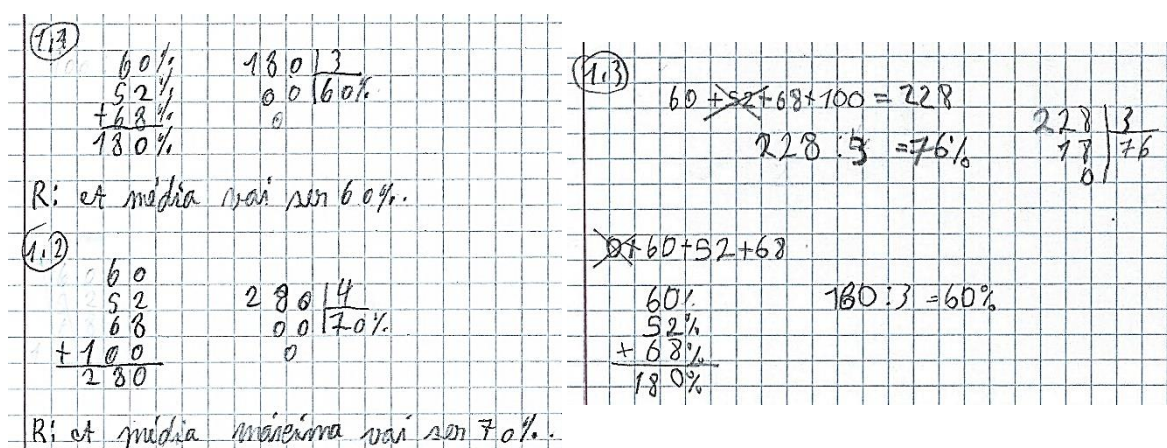 1.1
60%
52%
+68%
180%
180 | 3
00 | 60%
0
R: A média vai ser 60%.
1.2
60
52
68
+100
280
280 | 4
00 | 70%
0
R: A média máxima vai ser 70%.
1.3
60 +52+68+100 = 228
228 : 3 = 76%
228 | 3
18 | 76
0
0+60+52+68
60%
52%
+ 68%
180%
180 : 3 = 60%